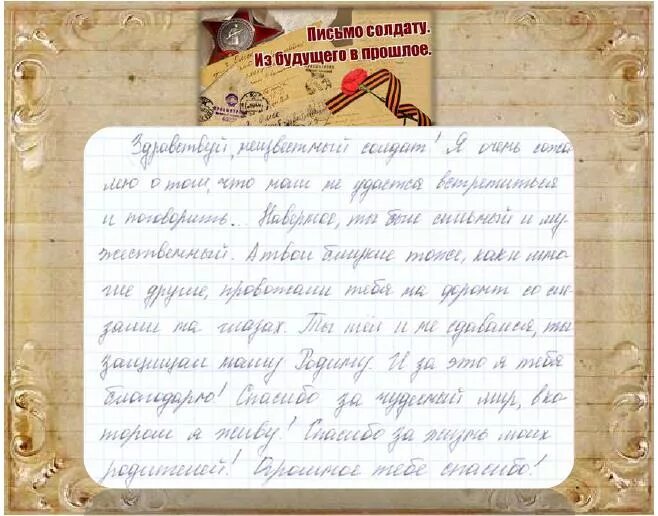 Письмо солдату.
Из будущего в прошлое.
Здравствуй, неизвестный солдат! Я очень сожа
лею о том, что нам не удастся встретиться
и поговорить... Наверное, ты был сильный и му
жественный. А твои близкие тоже, как и мно
гие другие, провожали тебя на фронт со сле
зами на глазах. Ты шёл и не сдавался, ты
защищал нашу Родину. И за это я тебя
благодарю! Спасибо за чудесный мир, в ко
тором я живу! Спасибо за жизнь моих
родителей! Огромное тебе спасибо!